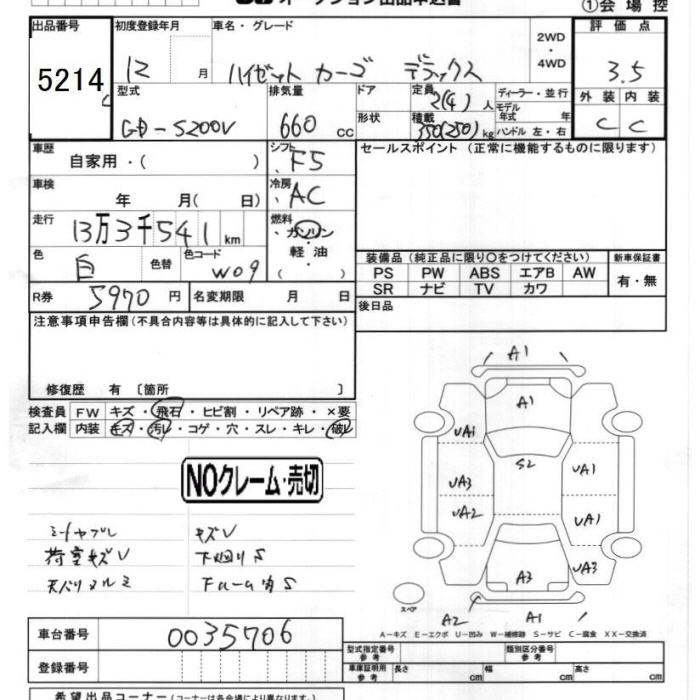 オークション出品申込書 ①会場控
出品番号 初度登録年月 車名・グレード 2WD・4WD 評価点
5214 12 月 ハイゼット カーゴ デラックス 3.5
型式 排気量 ドア 定員 2(4) 人 ディーラー・並行 外装 内装
GD-S200V 660 cc 形状 積載 350(250) kg モデル年式 年 ハンドル 左・右 C C
車歴 自家用・( ) シフト F5 セールスポイント (正常に機能するものに限ります)
車検 年 月( 日) 冷房 AC
走行 13万3千541 km 燃料 ・ガソリン 軽・油 ( )
色 白 色替 色コード W09 装備品 (純正品に限り○をつけてください) 新車保証書
PS PW ABS エアB AW 有・無
SR ナビ TV カワ
R券 5970 円 名変期限 月 日 後日品
注意事項申告欄 (不具合内容等は具体的に記入して下さい)
修復歴 有 〔箇所 〕
検査員 FW キズ・飛石・ヒビ割・リペア跡・×要
記入欄 内装 キズ・汚レ・コゲ・穴・スレ・キレ・破レ
NOクレーム・売切
シートヤブレ キズV
荷室キズV 下廻りS
天バリヌルミ フレーム等S
A1
A1
UA1
S2
UA1
UA3
UA2
UA1
A3
UA3
スペア
A2 A1
A-キズ E-エクボ U-凹み W-補修跡 S-サビ C-腐食 XX-交換済
車台番号 0035706
型式指定番号 参考 類別区分番号 参考
登録番号 車庫証明用 参考 長さ cm 幅 cm 高さ cm
希望出品コーナー (コーナーは各会場により異なります)